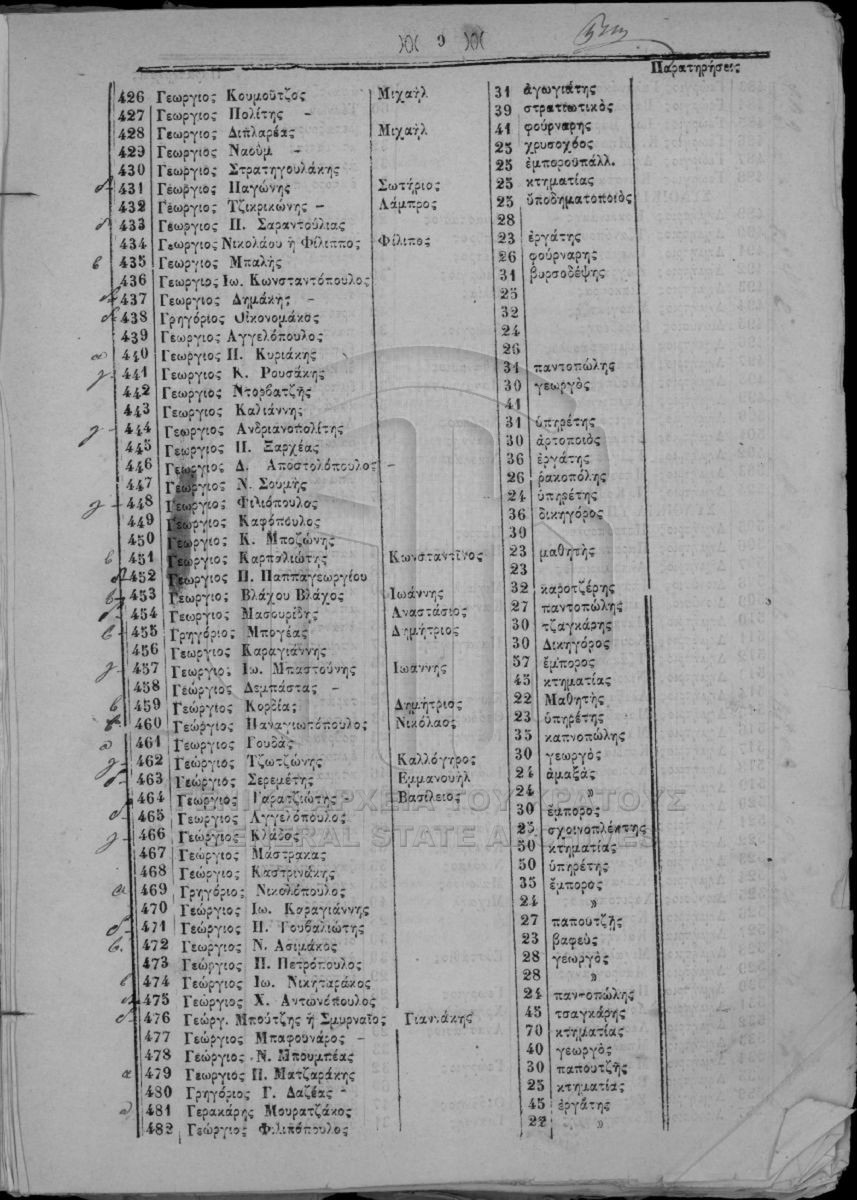 )( 9 )(
Παρατηρήσεις
426 Γεωργιος Κουμοῦτζος Μιχαὴλ 31 ἀγωγιάτης
427 Γεωργιος Πολίτης - 39 στρατιωτικὸς
428 Γεωργιος Διπλαρέας Μιχαὴλ 41 φούρναρης
429 Γεωργιος Ναοὺμ - 25 χρυσοχόος
430 Γεωργιος Στρατηγουλάκης 25 ἐμποροϋπάλλ.
δ 431 Γεωργιος Παγώνης Σωτήριος 25 κτηματίας
432 Γεωργιος Τζικρικώνης - Λάμπρος 25 ὑποδηματοποιὸς
δ 433 Γεωργιος Π. Σαραντούλιας 28
434 Γεωργιος Νικολάου ἢ Φίλιππος Φίλιπος 23 ἐργάτης
β 435 Γεωργιος Μπαλῆς 26 φούρναρης
436 Γεωργιος Ιω. Κωνσταντόπουλος 31 βυρσοδέψης
δ 437 Γεωργιος Δημάκης - 25
δ 438 Γρηγόριος Οἰκονομάκος 32
439 Γεωργιος Αγγελόπουλος 24
α 440 Γεωργιος Π. Κυριάκης 26
γ 441 Γεωργιος Κ. Ρουσάκης 31 παντοπώλης
442 Γεωργιος Ντορβατζῆς 30 γεωργὸς
443 Γεωργιος Καλιάννης 41
γ 444 Γεωργιος Ανδριανοπολίτης 31 ὑπηρέτης
445 Γεωργιος Π. Ξαρχέας 30 ἀρτοποιὸς
446 Γεωργιος Δ. Αποστολόπουλος - 36 ἐργάτης
447 Γεωργιος Ν. Σουμὴς 26 ρακοπόλης
γ 448 Γεωργιος Φιλιόπουλος 24 ὑπηρέτης
449 Γεωργιος Καφόπουλος 36 δικηγόρος
450 Γεωργιος Κ. Μποζώνης 30
β 451 Γεωργιος Καρπαλιώτης Κωνσταντῖνος 23 μαθητὴς
δ 452 Γεωργιος Π. Παππαγεωργίου 23
β 453 Γεωργιος Βλάχου Βλάχος Ιωάννης 32 καροτζέρης
δ 454 Γεωργιος Μασουρίδης Αναστάσιος 27 παντοπώλης
β 455 Γρηγόριος Μπογέας Δημήτριος 30 τζαγκάρης
456 Γεωργιος Καραγιάννης 30 Δικηγόρος
γ 457 Γεωργιος Ιω. Μπαστούνης Ιωάννης 57 ἔμπορος
458 Γεώργιος Δεμπάστας - 45 κτηματίας
β 459 Γεώργιος Κορδίας Δημήτριος 22 Μαθητὴς
β 460 Γεώργιος Παναγιωτόπουλος Νικόλαος 23 ὑπηρέτης
α 461 Γεωργιος Γουδᾶς 35 καπνοπώλης
γ 462 Γεώργιος Τζωτζώνης Καλλόγηρος 30 γεωργὸς
δ 463 Γεώργιος Σερεμέτης Εμμανουὴλ 24 ἀμαξᾶς
464 Γεωργιος Γαρατζιώτης - Βασίλειος 24 »
δ 465 Γεώργιος Αγγελόπουλος 30 ἔμπορος
γ 466 Γεώργιος Κλάδος 25 σχοινοπλέκτης
467 Γεώργιος Μάστρακας 50 κτηματίας
468 Γεώργιος Καστρινάκης 50 ὑπηρέτης
α 469 Γρηγόριος Νικολόπουλος 35 ἔμπορος
470 Γεώργιος Ιω. Καραγιάννης 24 »
δ 471 Γεώργιος Π. Γουβαλιώτης 27 παπουτζῆς
β. 472 Γεωργιος Ν. Ασιμάκος 23 βαφεὺς
473 Γεώργιος Π. Πετρόπουλος 28 γεωργὸς
β 474 Γεώργιος Ιω. Νικηταράκος 28 »
δ 475 Γεώργιος Χ. Αντωνόπουλος 24 παντοπώλης
δ 476 Γεώργ. Μπούτζης ἢ Σμυρναῖος Γιαννάκης 45 τσαγκάρης
477 Γεώργιος Μπαφουνάρος - 70 κτηματίας
478 Γεώργιος Ν. Μπουμπέας 40 γεωργὸς
α 479 Γεωργιος Π. Ματζαράκης 30 παπουτζῆς
480 Γρηγόριος Γ. Δαζέας - 25 κτηματίας
α 481 Γερακάρης Μουρατζάκος 45 ἐργάτης
482 Γεώργιος Φιλιπόπουλος 22 »
ΑΡΧΕΙΑ ΤΟΥ ΚΡΑΤΟΥΣ
GENERAL STATE ARCHIVES